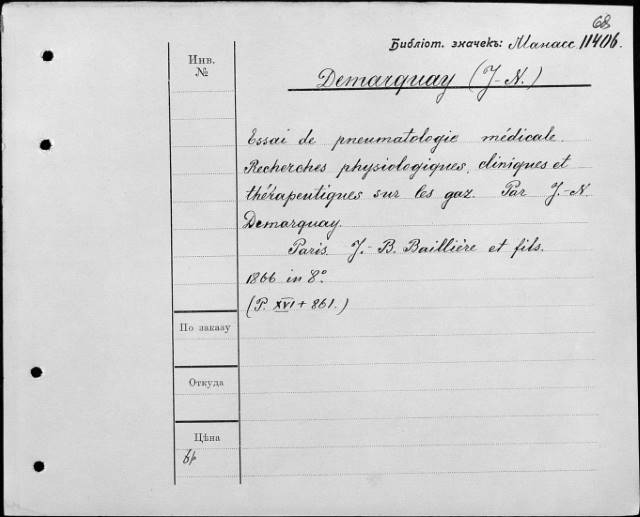 68
Библіот. значекъ: Манасс. 11406.
Инв.
№
Demarquay (J-N.)
Essai de pneumatologie médicale.
Recherches physiologiques, cliniques et
thérapeutiques sur les gaz. Par J.-N.
Demarquay.
Paris. J.-B. Baillière et fils.
1866 in 8°
(P. XVI + 861.)
По заказу
Откуда
Цѣна